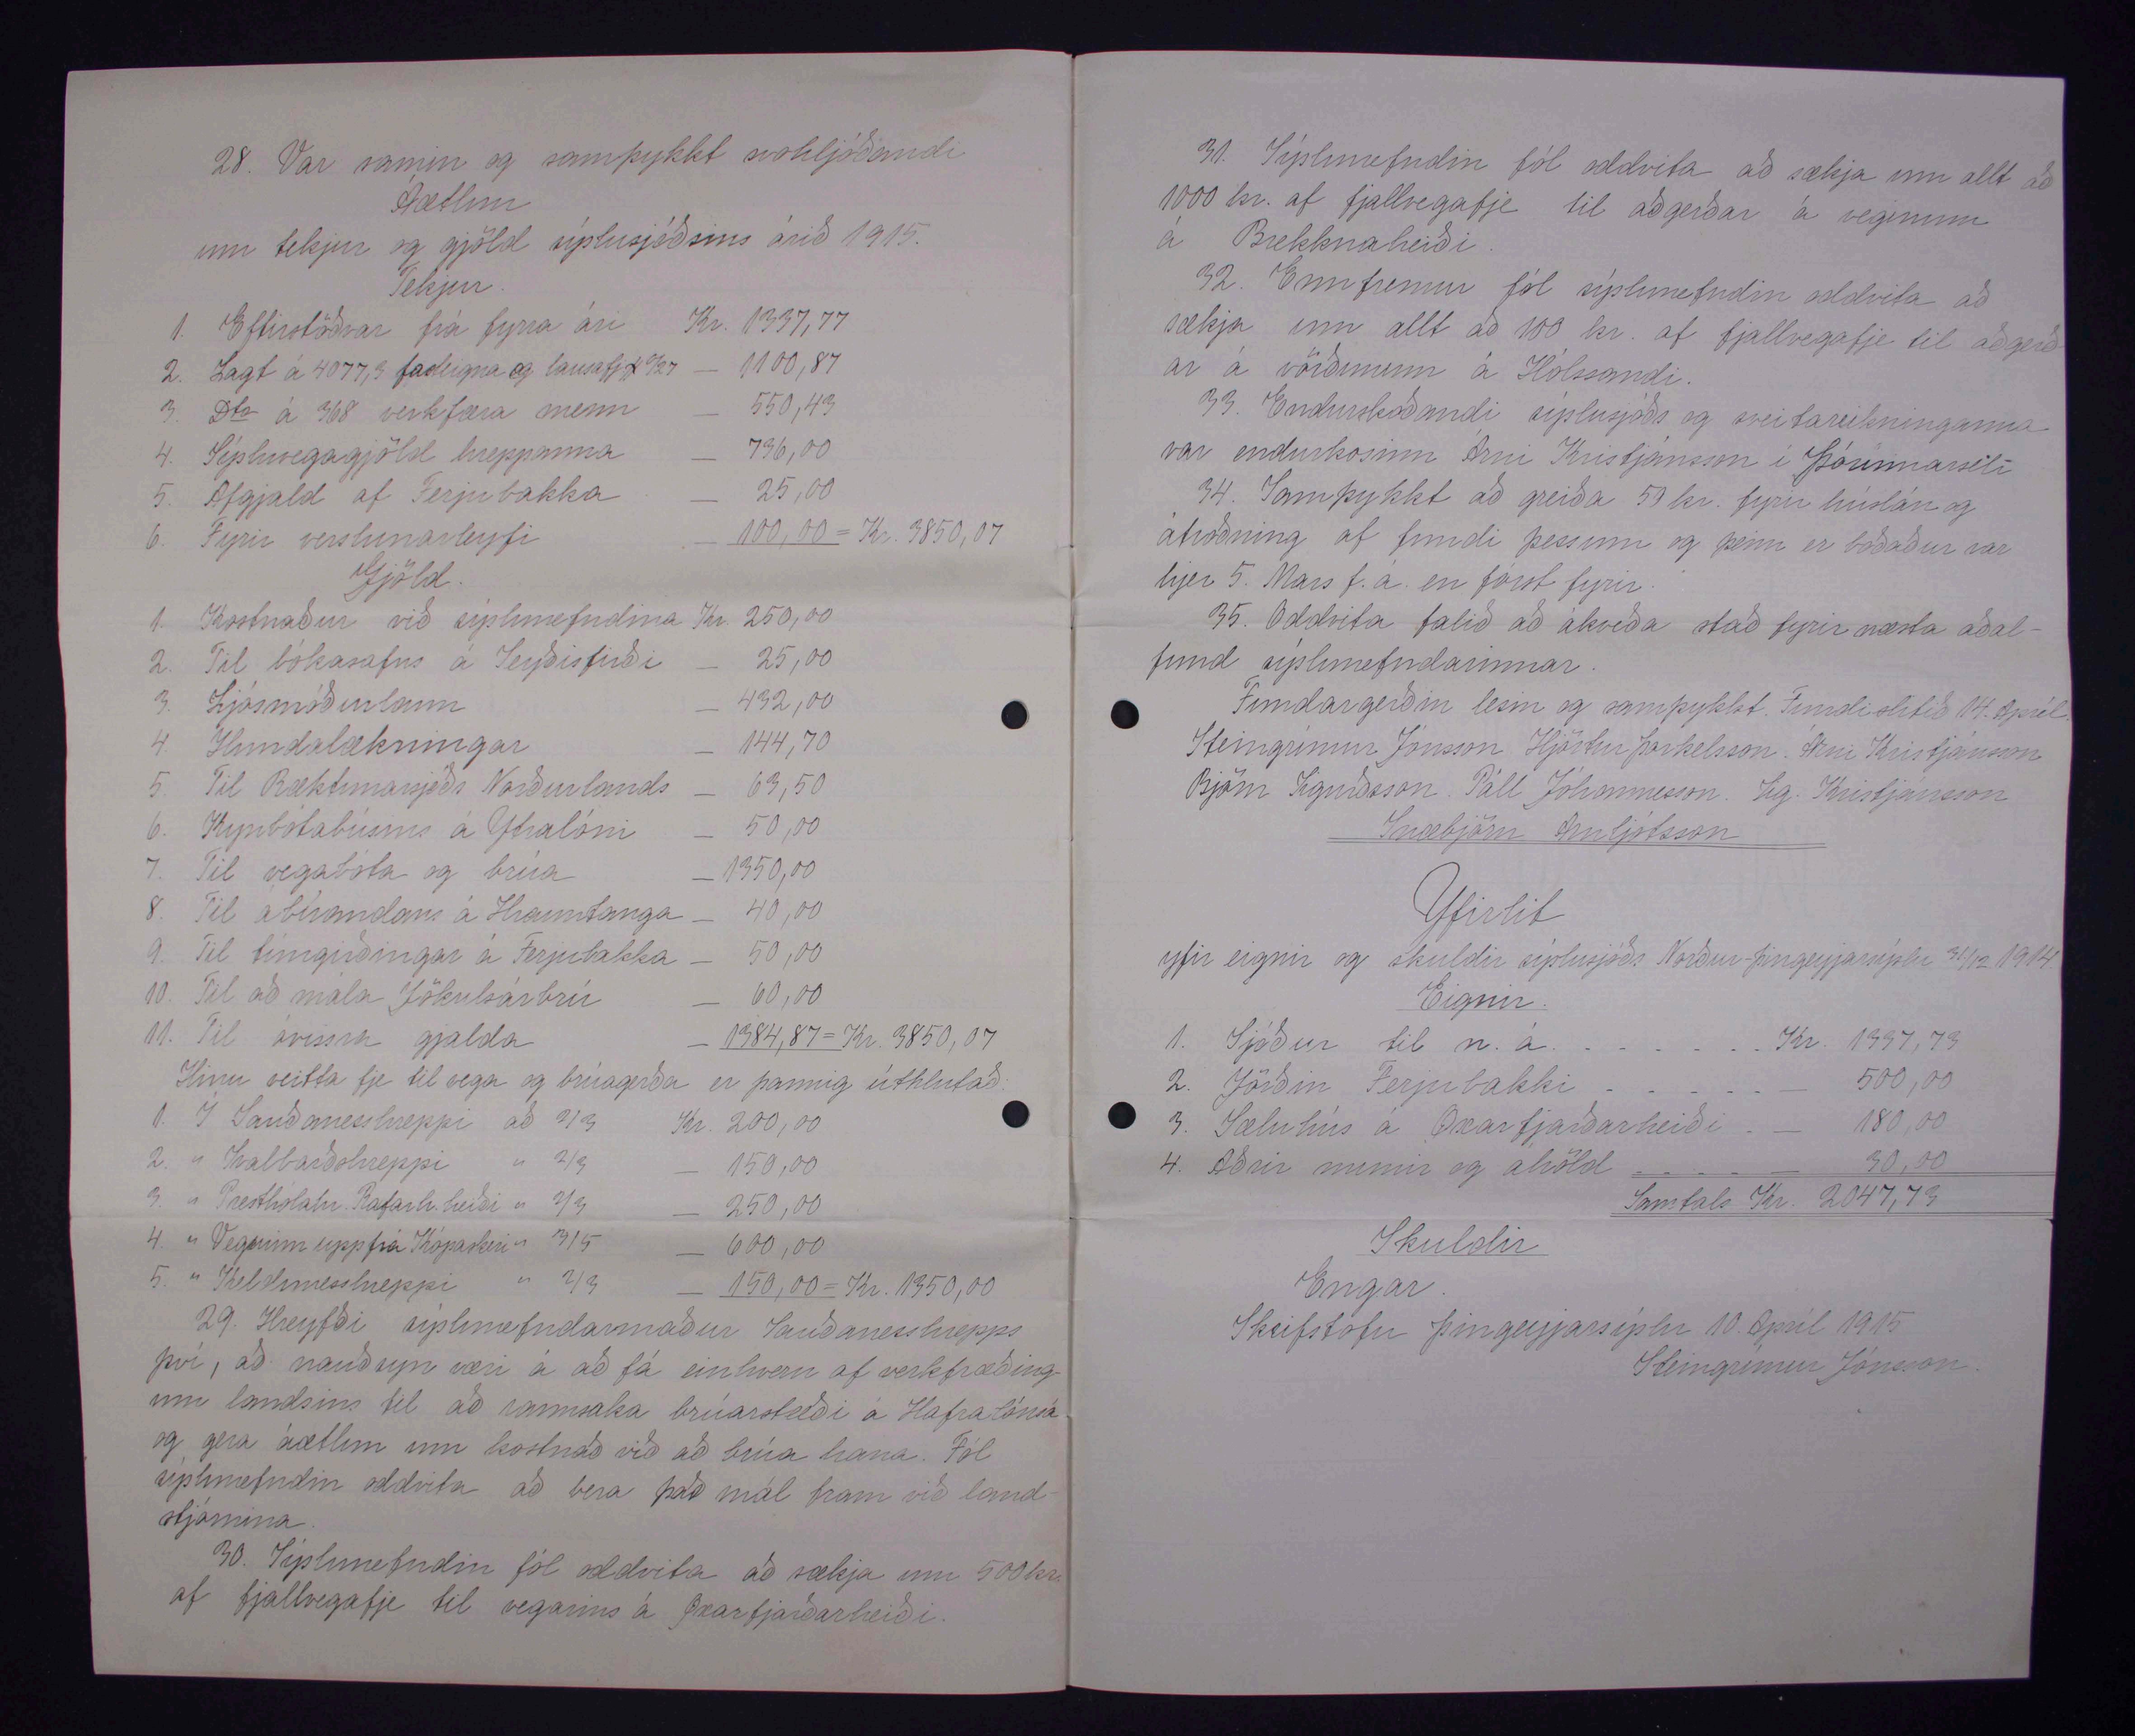 28. Var samin og samþykkt svohljóðandi
Áætlun
um tekjur og gjöld sýslusjóðsins árið 1915.
Tekjur.
1. Eftirstöðvar frá fyrra ári Kr. 1337,77
2. Lagt á 4077,3 fasteigna og lausafj. x 0/27 — 1100,87
3. Dto á 368 verkfæra menn — 550,43
4. Sýsluvegagjöld hreppanna — 736,00
5. Afgjald af Ferjubakka — 25,00
6. Fyrir verslunarleyfi — 100,00 = Kr. 3850,07
Gjöld.
1. Kostnaður við sýslunefndina Kr. 250,00
2. Til bókasafns á Seyðisfirði — 25,00
3. Ljósmóðurlaun — 432,00
4. Hundalækningar — 144,70
5. Til Ræktunarsjóðs Norðurlands — 63,50
6. Kynbótabúsins á Ytralóni — 50,00
7. Til vegabóta og brúa — 1350,00
8. Til ábúandans á Hrauntanga — 40,00
9. Til túngirðingar á Ferjubakka — 50,00
10. Til að mála Jökulsárbrú — 60,00
11. Til óvissra gjalda — 1384,87 = Kr. 3850,07
Hinu veitta fje til vega og brúagerða er þannig úthlutað:
1. Í Sauðanesshreppi að 2/3 Kr. 200,00
2. " Svalbarðshreppi " 2/3 — 150,00
3. " Presthólahr. Rafarh. heiði " 2/3 — 250,00
4. " Veginn upp frá Kópaskeri " 3/5 — 600,00
5. " Keldunesshreppi " 2/3 — 150,00 = Kr. 1350,00
29. Hreyfði sýslunefndarmaður Sauðanesshrepps
því, að nauðsyn væri á að fá einhvern af verkfræðing-
um landsins til að rannsaka brúarstæði á Hafralónsá
og gera áætlun um kostnað við að brúa hana. Fól
sýslunefndin oddvita að bera það mál fram við land-
stjórnina.
30. Sýslunefndin fól oddvita að sækja um 500 kr.
af fjallvegafje til vegarins á Öxarfjarðarheiði.
31. Sýslunefndin fól oddvita að sækja um allt að
1000 kr. af fjallvegafje til aðgerðar á veginum
á Brekknaheiði.
32. Ennfremur fól sýslunefndin oddvita að
sækja um allt að 100 kr. af fjallvegafje til aðgerð-
ar á vörðunum á Hólssandi.
33. Endurskoðandi sýslusjóðs og sveitareikninganna
var endurkosinn Árni Kristjánsson í Þórunnarseli
34. Samþykkt að greiða 59 kr. fyrir húslán og
átroðning af fundi þessum og þeim er boðaður var
hjer 5. Mars f. á. en fórst fyrir.
35. Oddvita falið að ákveða stað fyrir næsta aðal-
fund sýslunefndarinnar.
Fundargerðin lesin og samþykkt. Fundi slitið 14. Apríl.
Steingrímur Jónsson Hjörtur Þorkelsson. Árni Kristjánsson
Björn Sigurðsson. Páll Jóhannesson. Sig. Kristjánsson
Snæbjörn Arnljótsson
Yfirlit
yfir eignir og skuldir sýslusjóðs Norður-Þingeyjarsýslu 31/12 1914
Eignir.
1. Sjóður til n. á. . . . . . . Kr. 1337,73
2. Jörðin Ferjubakki . . . . . — 500,00
3. Sæluhús á Öxarfjarðarheiði . — 180,00
4. Aðrir munir og áhöld . . . . — 30,00
Samtals Kr. 2047,73
Skuldir
Engar.
Skrifstofu Þingeyjarsýslu 10. Apríl 1915
Steingrímur Jónsson.